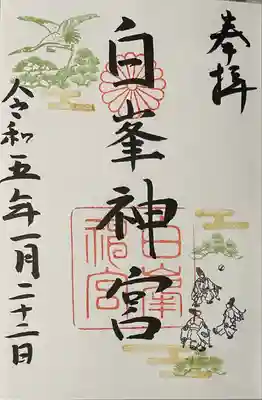 奉拝
白峯神宮
白峯神宮
令和五年一月二十二日